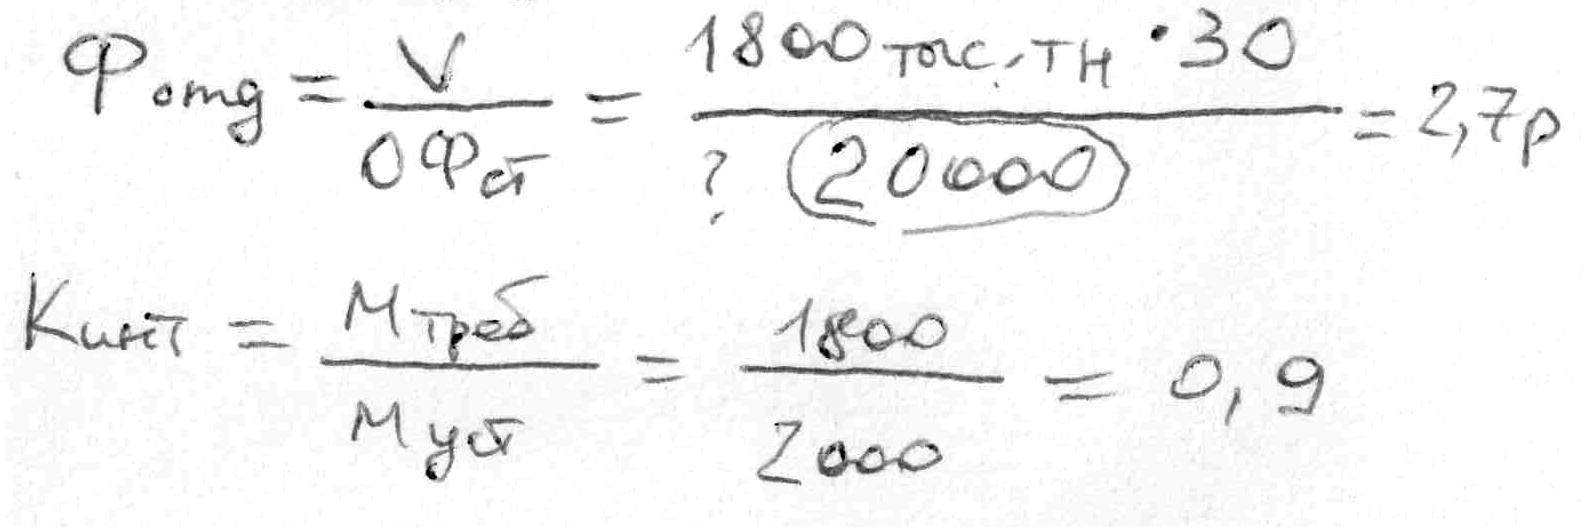 Фотд = V / ОФст = 1800 тыс. тн · 30 / ? 20000 = 2,7р
Kинт = Mтреб / Mуст = 1800 / 2000 = 0,9